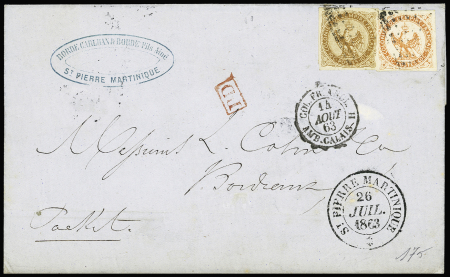 ST PIERRE MARTINIQUE
PD
COL. FR. ANG.
15
AOUT
63
AMB. CALAIS H
Messieurs L. & Co
Bordeaux
Packet
ST PIERRE MARTINIQUE
26
JUIL.
1863
175